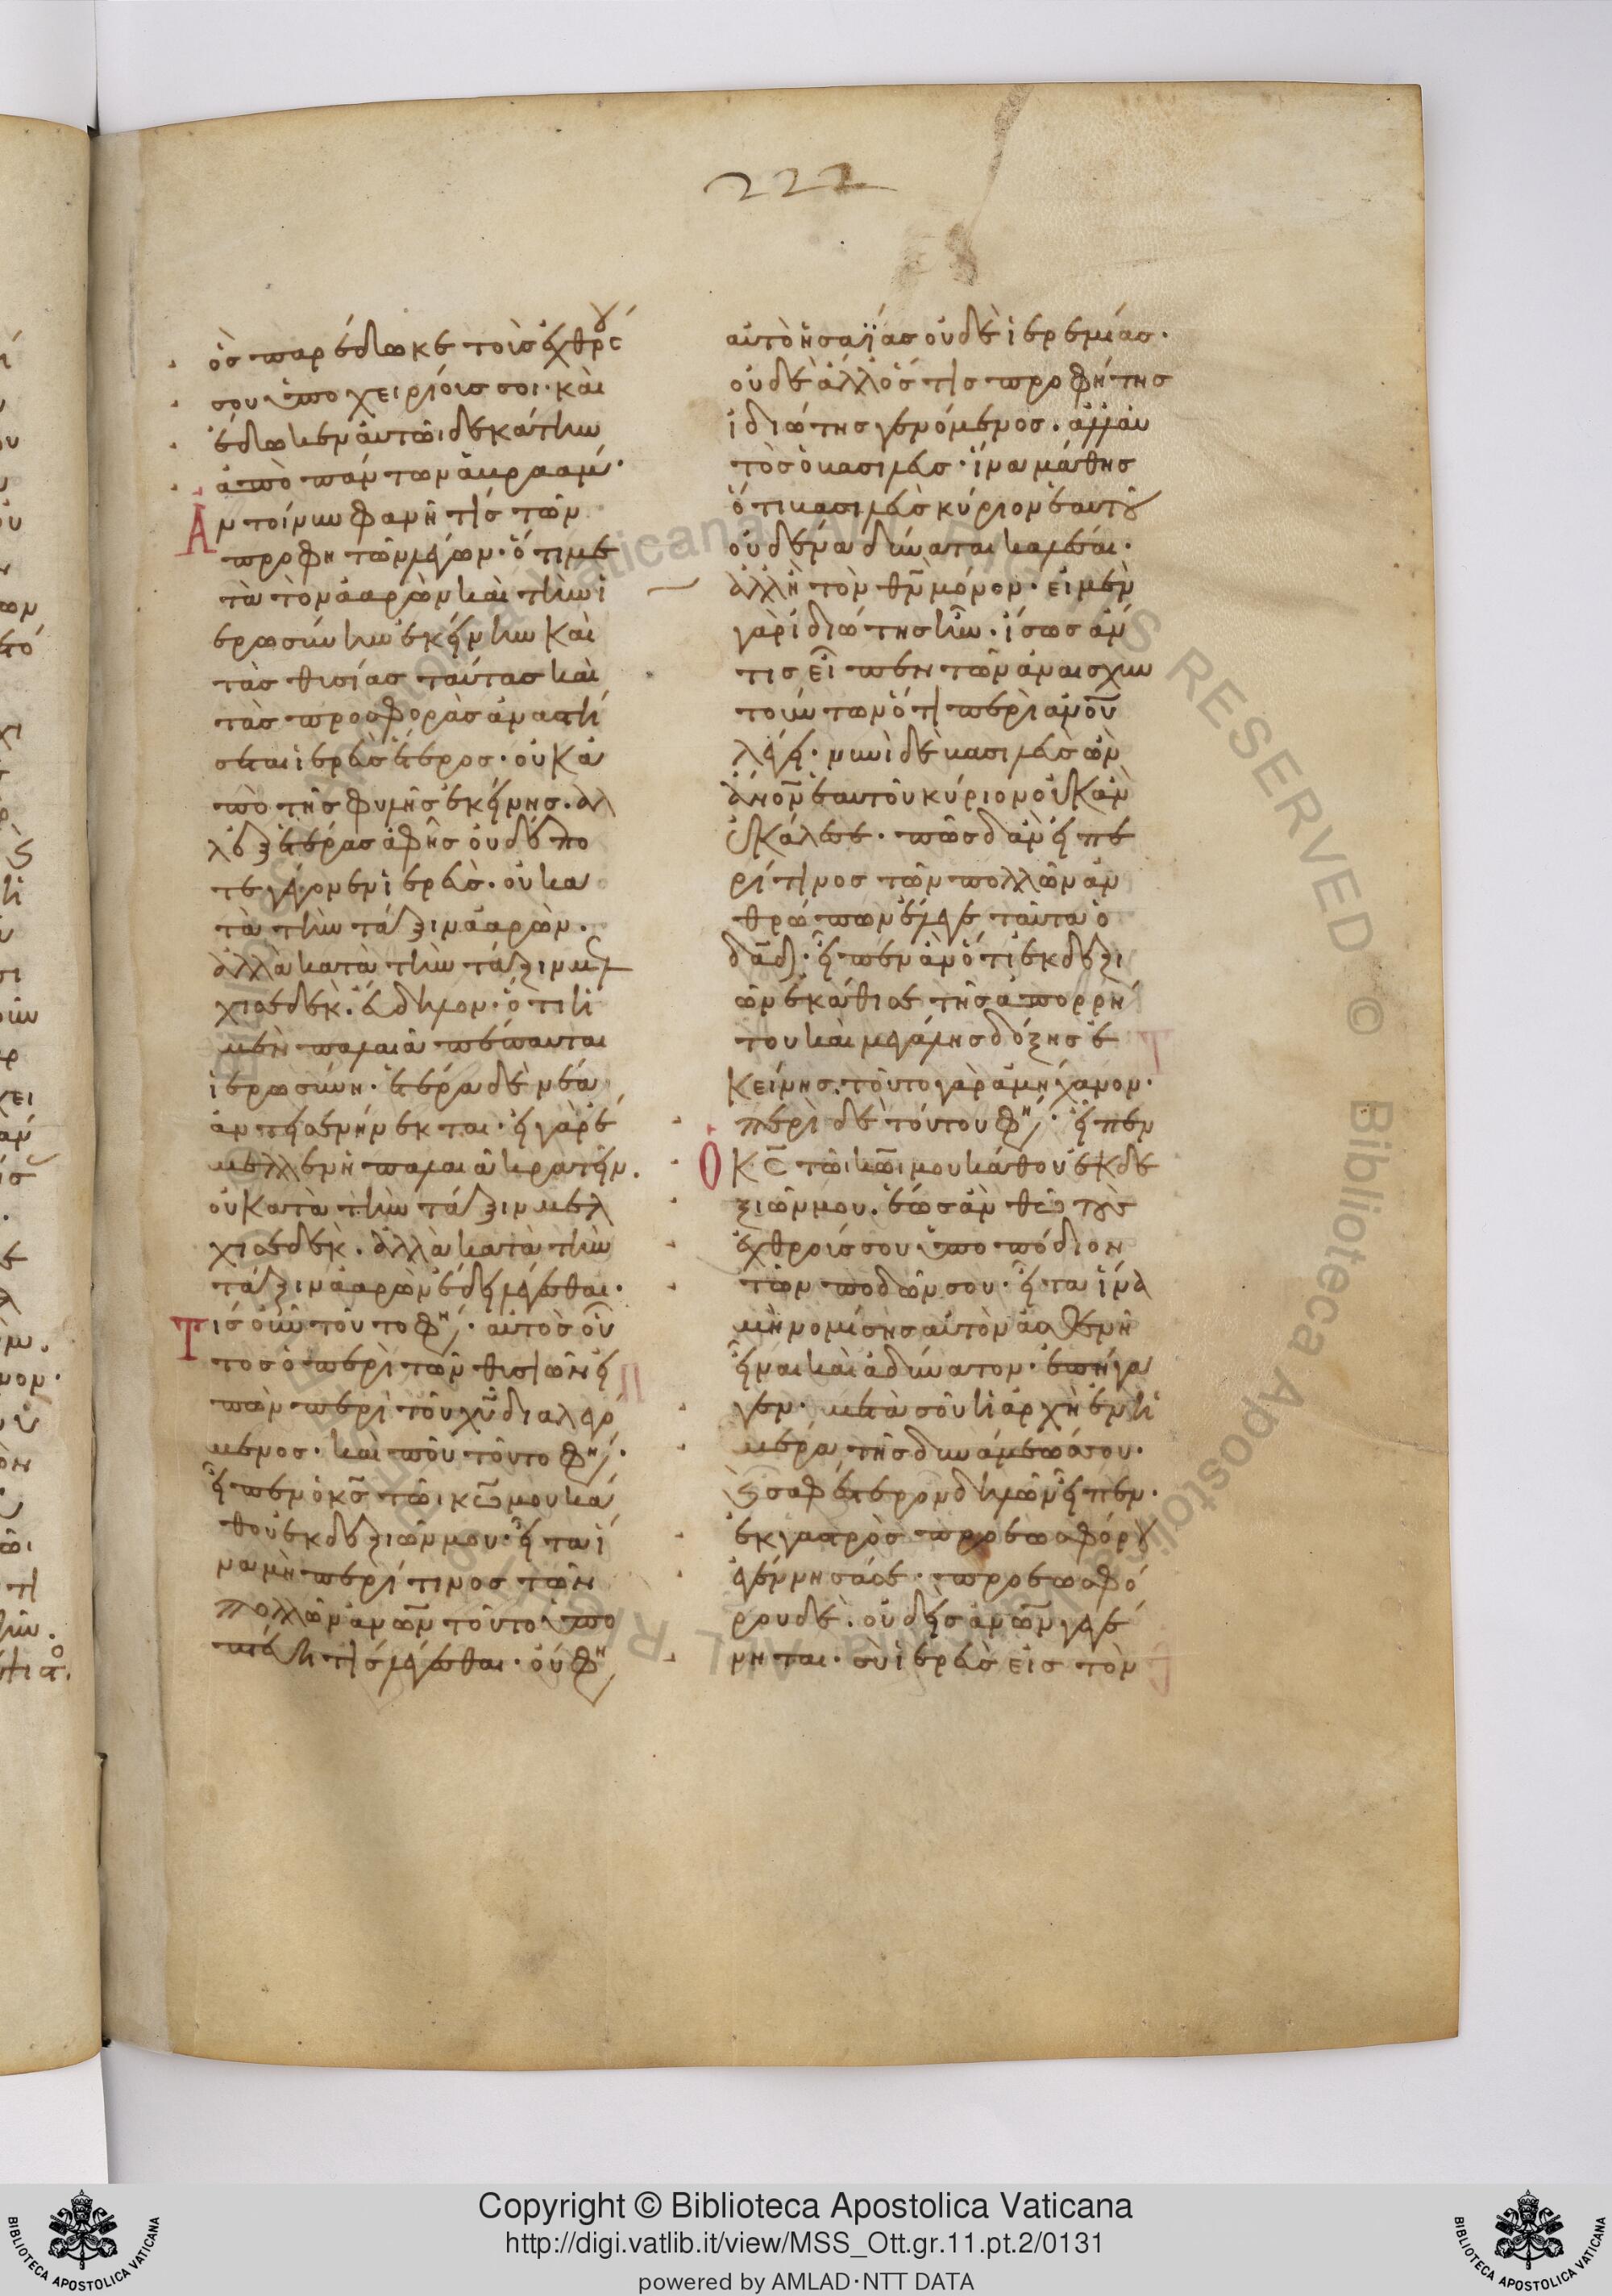 222
ὃσ παρέδωκε τοὺσ ἐχθρούσ
σου ὑποχειρίουσ σοι· καὶ
ἔδωκεν αὐτῶι δεκάτην
ἀπὸ πάντων ἁβραάμ·
Ἀντοίνυν φανῆ τίσ τῶν
προφητῶν λέγων· ὅτι με
τὰ τὸν ἀαρὼν καὶ τὴν ἱ
ερωσύνην ἐκείνην καὶ
τὰσ θυσίασ ταύτασ καὶ
τὰσ προσφορὰσ ἀναστή
σεται ἱερεὺσ ἕτερος· οὐκ ἀ
πὸ τῆσ φυλῆσ ἐκείνησ· ἀλ
λ' ἐξ ἑτέρασ ἀφ' ἧσ οὐδέπο
τε γέγονεν ἱερεύσ· οὐ κα
τὰ τὴν τάξιν ἀαρών·
ἀλλὰ κατὰ τὴν τάξιν μελ
χισεδέκ· εὔδηλον· ὅτι ἡ
μὲν παλαιὰ πέπαυται
ἱερωσύνη· ἑτέρα δὲ νέα
ἀντεισενήνεκται· εἰ γὰρ ἔ
μελλεν ἡ παλαιὰ κρατεῖν·
οὐ κατὰ τὴν τάξιν μελ
χισεδέκ· ἀλλὰ κατὰ τὴν
τάξιν ἀαρὼν ἔδει λέγεσθαι·
Τίσ οὖν τοῦτο φη· αὐτὸσ οὗ
τοσ ὁ περὶ τῶν θυσιῶν εἰ
πὼν περὶ τοῦ χυ διαλεγό
μενοσ· καὶ ποῦ τοῦτο φη·
εἶπεν ὁ κσ τῶι κω μου κά
θου ἐκ δεξιῶν μου· εἶτα ἵ
να μὴ περί τινοσ τῶν
πολλῶν ἀνων τοῦτο ὑπο
πτεύση τισ λέγεσθαι· οὔ φη
αὐτὸ ἡσαΐασ οὐδὲ ἱερεμίασ·
οὐδὲ ἄλλόσ τισ προφήτησ
ἰδιώτησ γενόμενοσ· ἀλλ' αὐ
τὸσ ὁ βασιλεύσ· ἵνα μάθησ
ὅτι βασιλεὺσ κύριον ἑαυτοῦ
οὐδένα δύναται καλέσαι·
ἀλλ' ἢ τὸν θν μόνον· εἰ μὲν
γὰρ ἰδιώτησ ἦν· ἴσωσ ἄν
τισ εἶπε τῶν ἀναισχυν
τούντων ὅτι περὶ ἀνου
λέγει· νυνὶ δὲ βασιλεὺσ ὢν
ἄνον ἑαυτοῦ κύριον οὐκ ἂν
ἐκάλεσε· πῶσ δ' ἂν εἰ πε
ρί τινοσ τῶν πολλῶν ἀν
θρώπων ἔλεγε ταῦτα ὁ
δαδ· εἶπεν ἂν ὅτι ἐκ δεξι
ῶν ἐκάθισε τῆσ ἀπορρή
του καὶ μεγάλησ δόξησ ἐ
κείνησ· τοῦτο γὰρ ἀμήχανον·
περὶ δὲ τούτου φη· εἶπεν
Ὁ κσ τῶι κωι μου κάθου ἐκ δε
ξιῶν μου· ἕωσ ἂν θῶ τοὺσ
ἐχθρούσ σου ὑποπόδιον
τῶν ποδῶν σου· εἶτα ἵνα
μὴ νομίσησ αὐτὸν ἀσθενῆ
εἶναι καὶ ἀδύνατον· ἐπήγα
γεν· μετὰ σοῦ ἡ ἀρχὴ ἐν ἡ
μέρα τῆσ δυνάμεώσ σου·
Ὃ σαφέστερον δηλῶν εἶπεν·
ἐκ γαστρὸσ πρὸ ἑωσφόρου
ἐγέννησά σε· πρὸ ἑωσφό
ρου δὲ· οὐδεὶσ ἀνων γεγέ
νηται· σὺ ἱερεὺσ εἰσ τὸν
Copyright © Biblioteca Apostolica Vaticana
http://digi.vatlib.it/view/MSS_Ott.gr.11.pt.2/0131
powered by AMLAD·NTT DATA
BIBLIOTECA APOSTOLICA VATICANA
BIBLIOTECA APOSTOLICA VATICANA